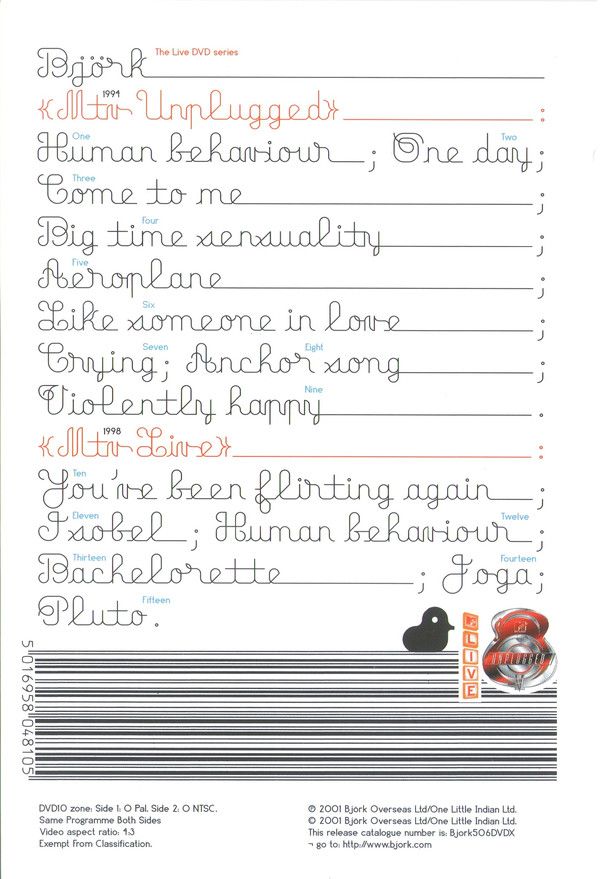 Björk The Live DVD series
1994
«Mtv Unplugged» :
One Two
Human behaviour ; One day;
Three
Come to me ;
Four
Big time sensuality ;
Five
Aeroplane ;
Six
Like someone in love ;
Seven Eight
Crying; Anchor song ;
Nine
Violently happy .
1998
«Mtv Live» :
Ten
You've been flirting again ;
Eleven Twelve
Isobel ; Human behaviour ;
Thirteen Fourteen
Bachelorette ; Joga;
Fifteen
Pluto.
LIVE
UNPLUGGED
5 016958 048105
DVD10 zone: Side 1: 0 Pal. Side 2: 0 NTSC.
Same Programme Both Sides
Video aspect ratio: 4:3
Exempt From Classification.
℗ 2001 Bjork Overseas Ltd/One Little Indian Ltd.
© 2001 Bjork Overseas Ltd/One Little Indian Ltd.
This release catalogue number is: Bjork506DVDX
¬ go to: http://www.bjork.com